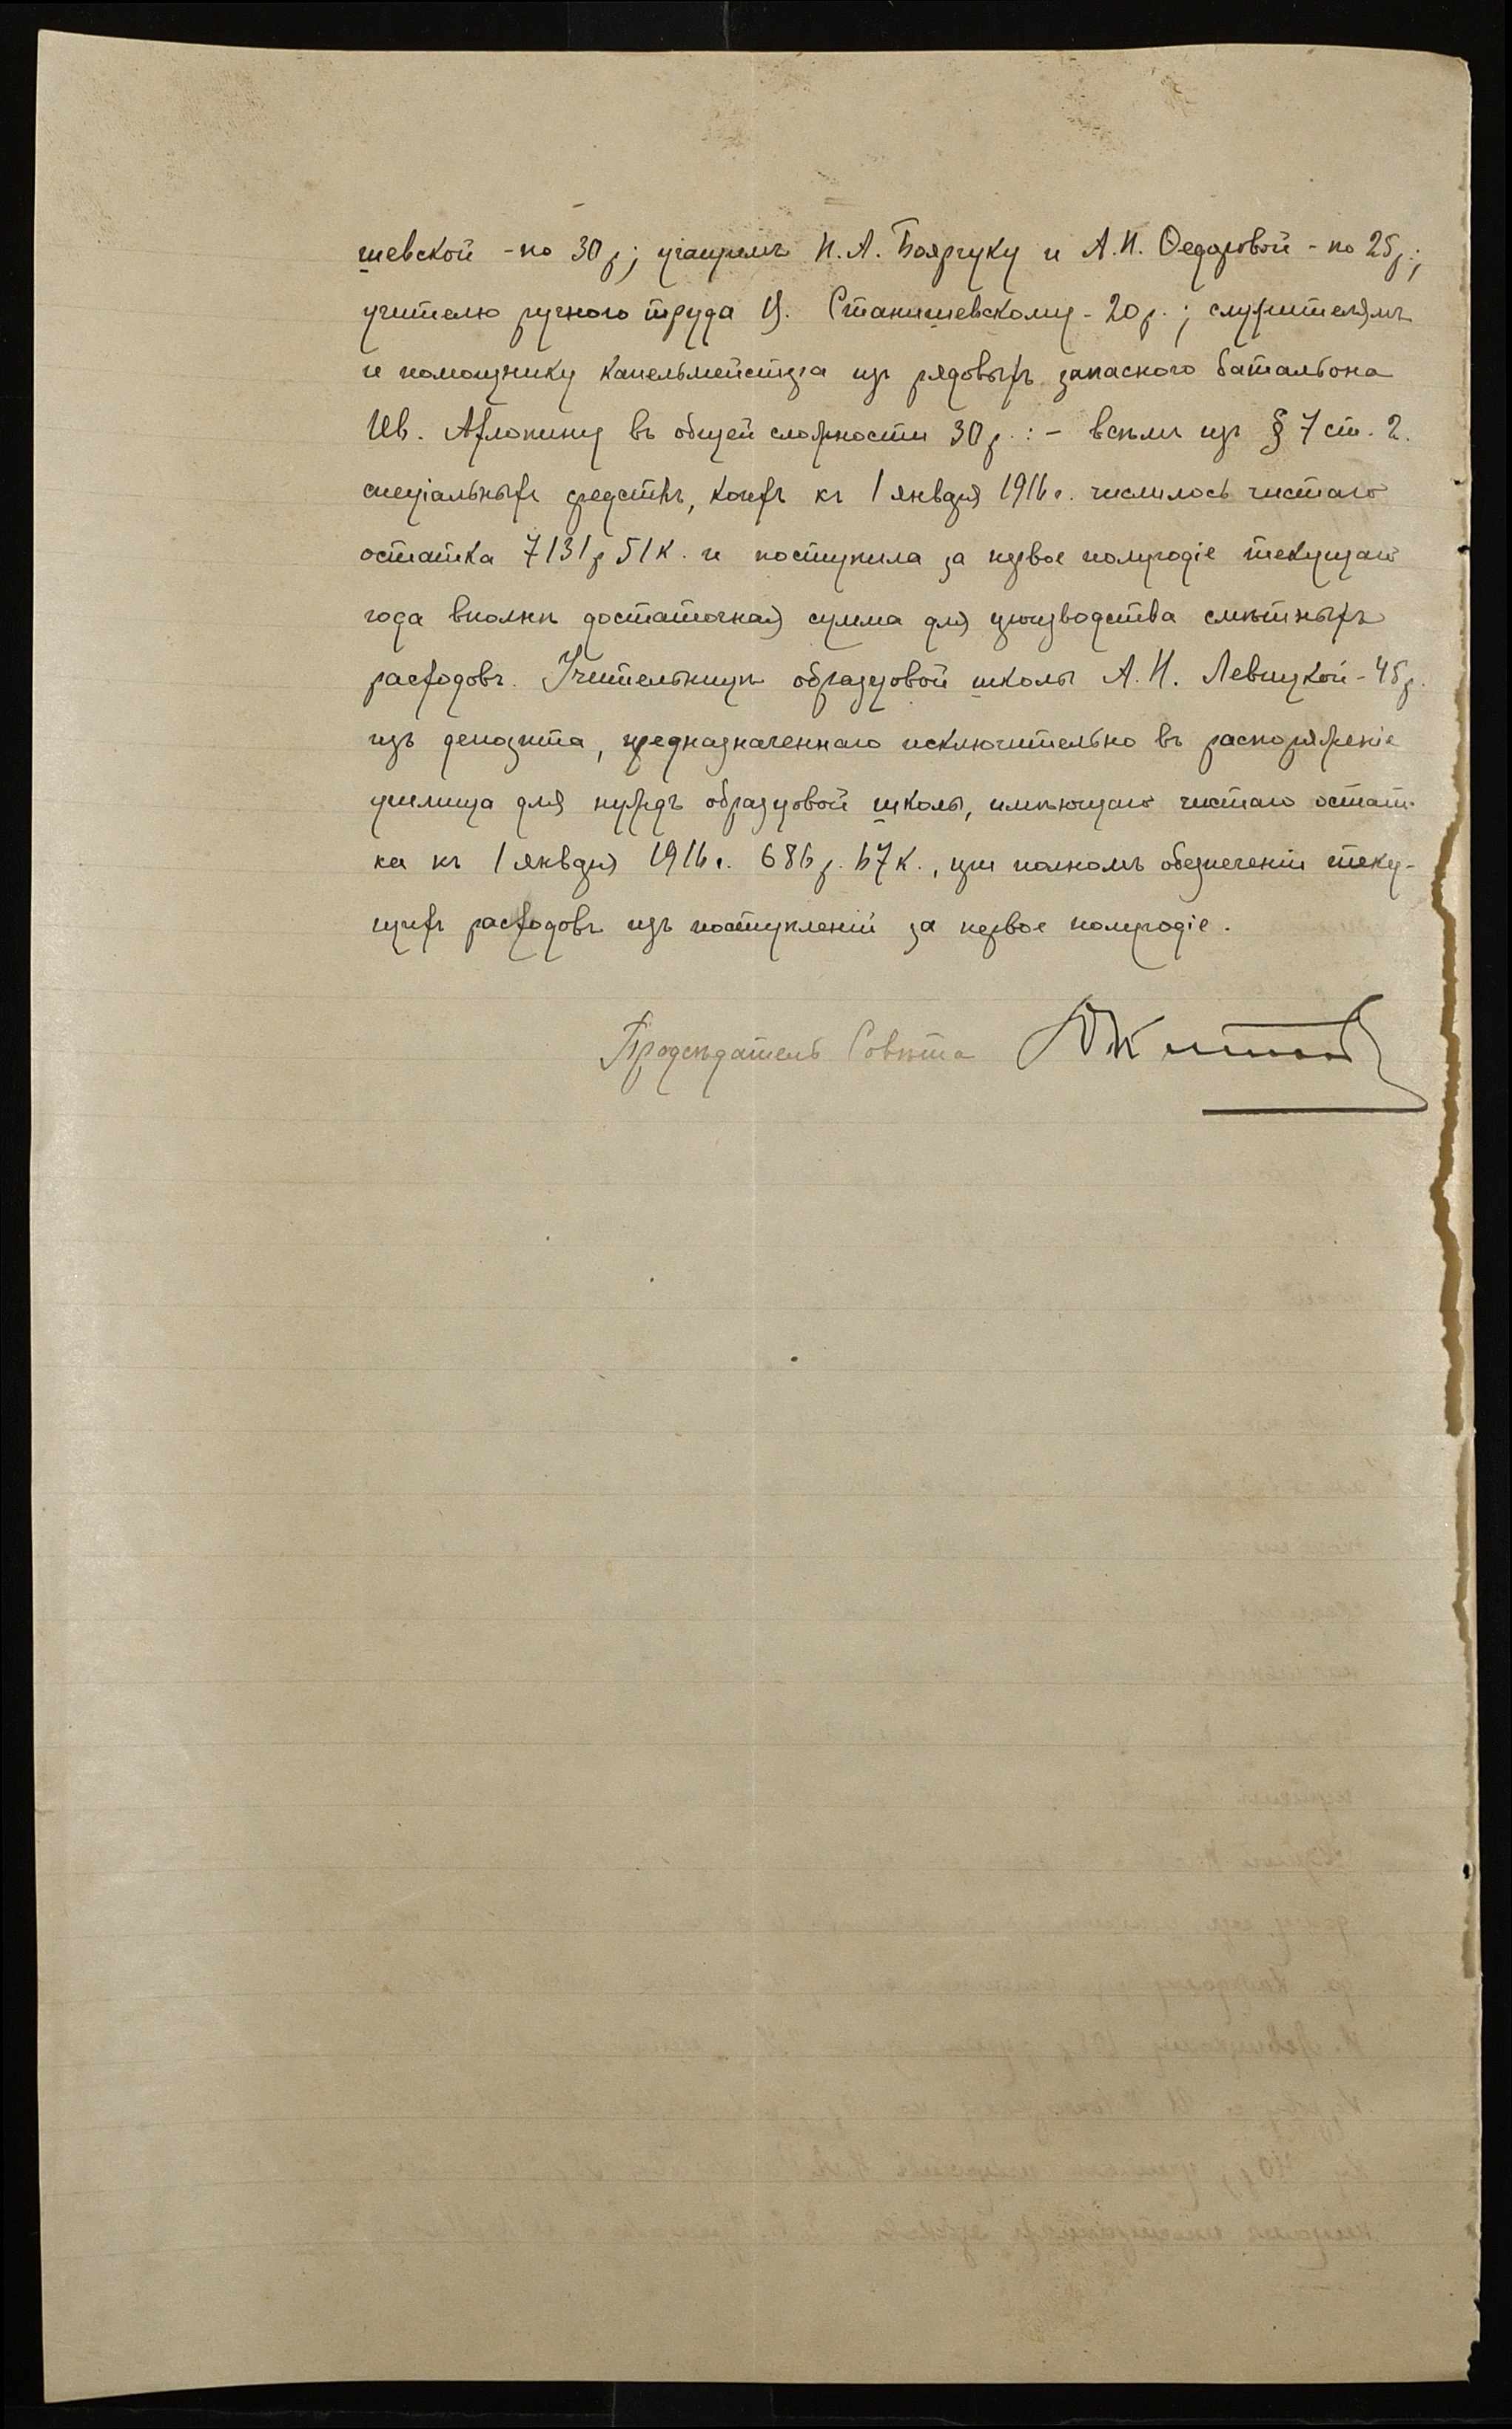 шевской - по 30 р.; учащимъ П. А. Боярчуку и А. П. Ѳедоровой - по 25 р.;
учителю ручного труда Ц. Станишевскому - 20 р.; служителямъ
и помощнику капельмейстера изъ рядовыхъ запаснаго батальона
Ив. Ахлопину въ общей сложности 30 р.: - всѣмъ изъ § 7 ст. 2.
спеціальныхъ средствъ, коихъ къ 1 января 1916 г. числилось чистаго
остатка 7131 р 51 к. и поступила за первое полугодіе текущаго
года вполнѣ достаточная сумма для производства смѣтныхъ
расходовъ. Учительницѣ образцовой школы А. И. Левицкой - 45 р.
изъ депозита, предназначеннаго исключительно въ распоряженіе
училища для нуждъ образцовой школы, имѣющаго чистаго остат-
ка къ 1 января 1916 г. 686 р. 67 к., при полномъ обезпеченіи теку-
щихъ расходовъ изъ поступленій за первое полугодіе.
Предсѣдатель Совѣта